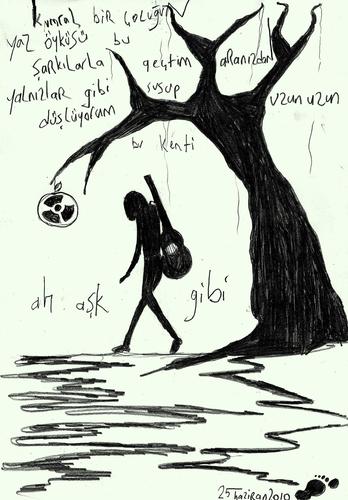 kumral bir çocuğun
yaz öyküsü bu
şarkılarla geçtim aranızdan
yalnızlar gibi susup uzun uzun
düşlüyorum
bu kenti
ah aşk gibi
25 haziran 2010